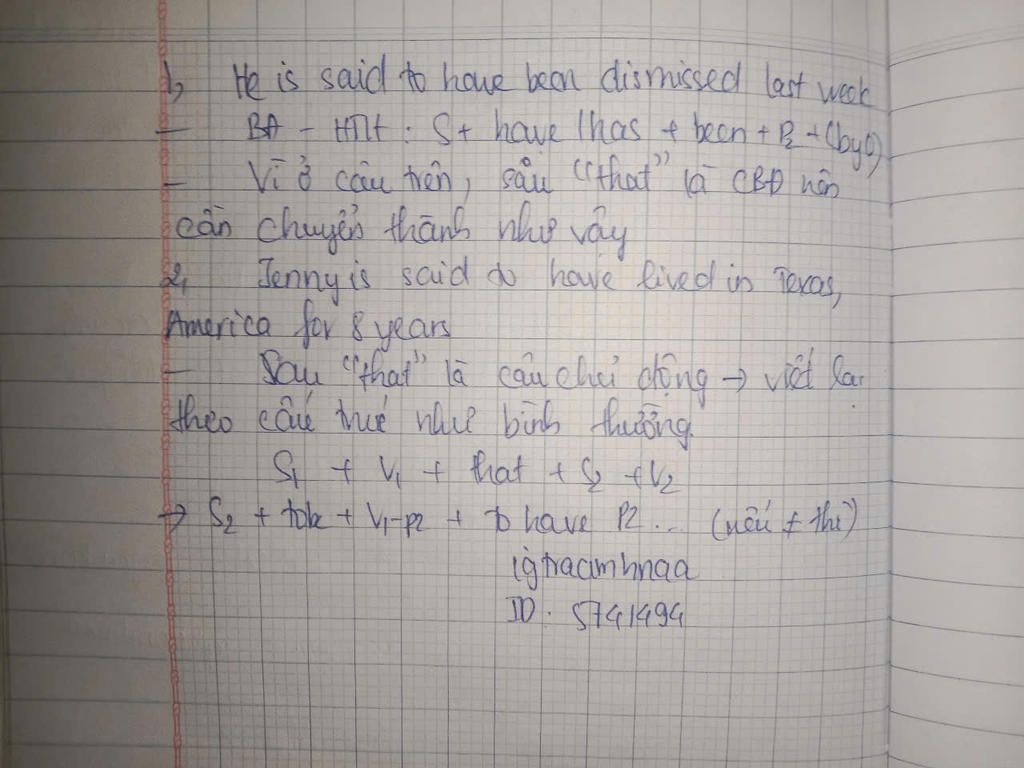 1, He is said to have been dismissed last week
- BĐ - HTHT : S + have / has + been + P2 + (by O)
- Vì ở câu trên, sau "that" là CBĐ nên
cần chuyển thành như vậy
2, Jenny is said to have lived in Texas,
America for 8 years
- Sau "that" là câu chủ động → viết lại
theo cấu trúc như bình thường.
S1 + V1 + that + S2 + V2
→ S2 + tobe + V1-p2 + to have P2 ... (nếu ≠ thì)
igtraamhnaa
ID : 5741494